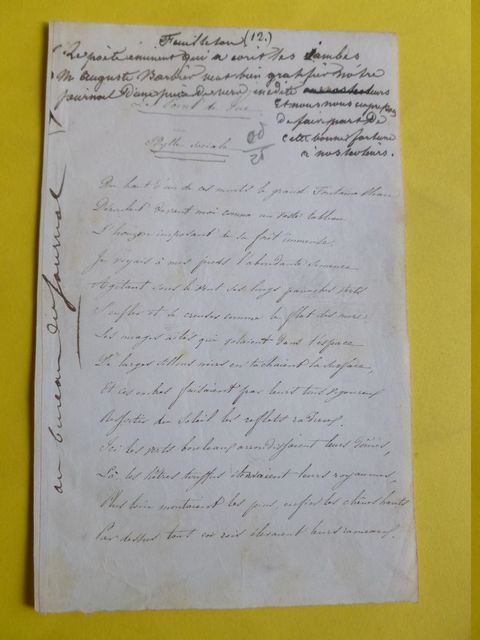 Feuilleton (12.)
Le poète éminent qui a écrit les iambes
Mr Auguste Barbier veut bien gratifier notre
journal d'une pièce de vers inédite
Et nous nous empressons
de faire part de
cette bonne fortune
à nos lecteurs.
Le Point de Vue
Idylle sociale
au bureau du journal
Du haut d'un de ces monts le grand Fontainebleau
Déroulait devant moi comme un vaste tableau
L'horizon imposant de sa forêt immense.
Je voyais à mes pieds l'abondante semence
Agitant sous le vent ses longs panaches verts
S'enfler et se creuser comme le flot des mers.
Les nuages ailés qui volaient dans l'espace
De larges sillons noirs en tachaient la surface,
Et ces ombres faisaient par leurs tons vigoureux
Ressortir du soleil les reflets radieux.
Ici les verts bouleaux arrondissaient leurs dômes,
Là, les hêtres touffus étendaient leurs royaumes,
Plus loin montaient les pins, enfin les chênes hauts
Par dessus tout ces rois élevaient leurs rameaux.